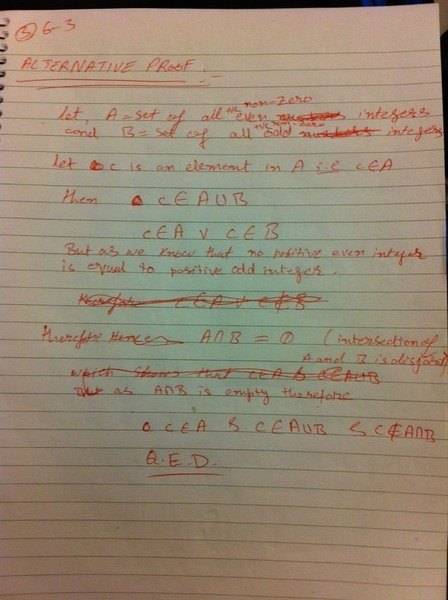 ③ 6-3
ALTERNATIVE PROOF :-
Let, A = set of all +ve non-zero even integers
and B = set of all +ve non-zero odd integers
Let c is an element in A i.e c∈A
then c∈A∪B
c∈A ∨ c∈B
But as we know that no positive even integer
is equal to positive odd integer.
therefore c∈A ∨ c∉B
therefore Hence A∩B = ∅ (intersection of
A and B is disjoint)
which shows that c∈A & c∈A∪B
but as A∩B is empty therefore
c∈A & c∈A∪B & c∉A∩B
Q.E.D.